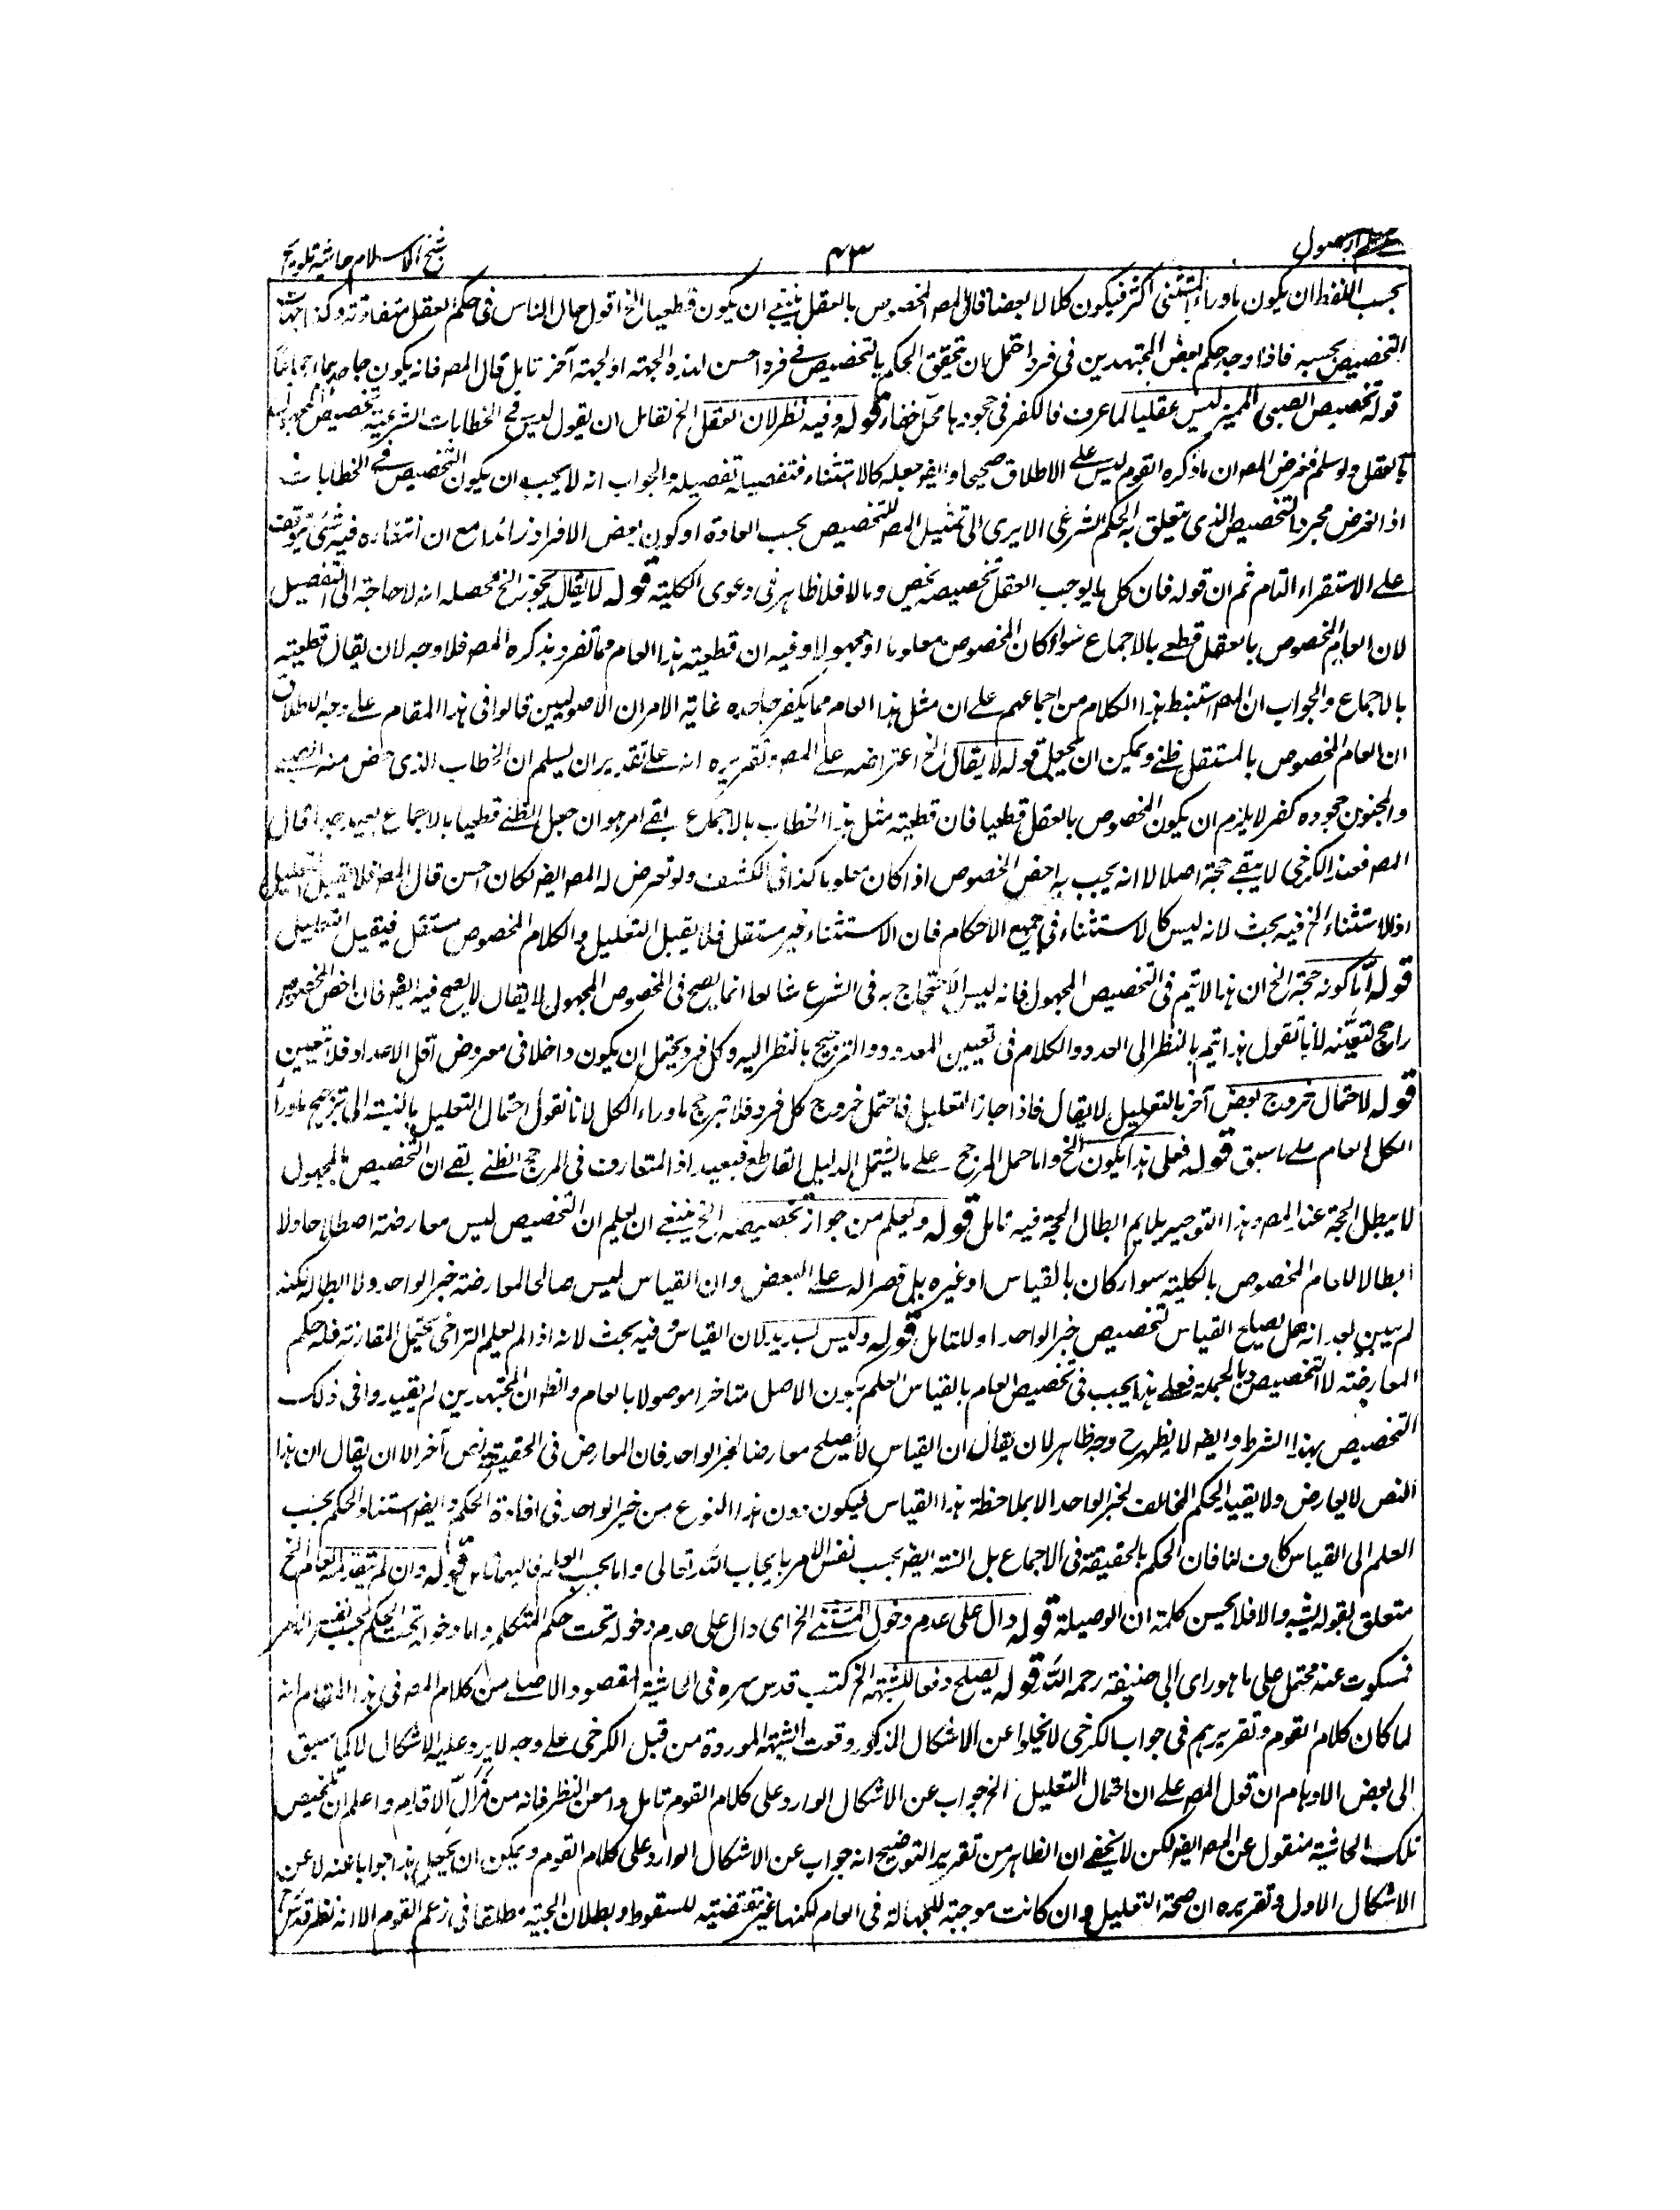 اصول
۴۳
شيخ الاسلام حاشية تلويح
بحسب اللفظ ان يكون ماوراء المستثنى اكثر فيكون كلا لا بعضا قال المص المخصوص بالعقل ينبغي ان يكون قطعيا الخ اقول حال الناس في حكم العقل متفاوتة وكذا
التخصيص بحسبه فاذا وجد حكم بعض المجتهدين في فرد احتمل ان يتحقق الحكم بالتخصيص في فرد احسن لهذه الجهة او لجهة آخر تامل قال المص فانه يكون جاحدها
قوله تخصيص الصبى المميز ليس عقليا لما عرف فالكفر في جحودها محل خفاء قوله وفيه نظر لان العقل الخ لقائل ان يقول ليس في الخطابات الشرعية تخصيص
بالعقل ولو سلم فغرض المص ان ما ذكره القوم ليس على الاطلاق صحيحا وايضا جعله كالاستثناء فتفصيله تفصيله والجواب انه لا يجب ان يكون التخصيص في الخطابات
اذ الغرض مجرد التخصيص الذى يتعلق به الحكم الشرعي الا يرى الى تمثيل المص للتخصيص بحسب العادة او كون بعض الافراد زائدا مع ان انتفاءه فيه شئ يتوقف
على الاستقراء التام ثم ان قوله فان كل ما يوجب العقل تخصيصه يخص وما لا فلا ظاهر في دعوى الكلية قوله لا يقال يجوز الخ محصله انه لا حاجة الى التفصيل
لان العام المخصوص بالعقل قطعي بالاجماع سواء كان المخصوص معلوما او مجهولا وفيه ان قطعية هذا العام مما تفرد بذكره المص فلا وجه لان يقال قطعيته
بالاجماع والجواب ان المص استنبط هذا الكلام من اجماعهم على ان مثل هذا العام مما يكفر جاحده غاية الامر ان الاصوليين قالوا في هذا المقام على وجه الاطلاق
ان العام المخصوص بالمستقل ظني ويمكن ان يجعل قوله لا يقال الخ اعتراضه على المص وتقريره انه على تقدير ان يسلم ان الخطاب الذى خص منه الصبي
والمجنون جحوده كفر لا يلزم ان يكون المخصوص بالعقل قطعيا فان قطعية مثل هذا الخطاب بالاجماع بقى امر هو ان جعل الظني قطعيا بالاجماع بعيد جدا قال
المص فعند الكرخي لا يبقى حجة اصلا الا انه يجب به اخص الخصوص اذا كان معلوما كذا في الكشف ولو تعرض له المص ايضا لكان احسن قال المص فلا يقبل التعليل
اذ الاستثناء الخ فيه بحث لانه ليس كالاستثناء في جميع الاحكام فان الاستثناء غير مستقل فلا يقبل التعليل والكلام المخصوص مستقل فيقبل التعليل
قوله اما كونه حجة الخ ان هذا لا يتم في التخصيص المجهول فانه ليس الاحتجاج به في الشرع شائعا انما يصح في المخصوص المجهول لا يقال لا يصح فيه ايضا فان اخص الخصوص
راجح لتعينه لانا نقول هذا يتم بالنظر الى العدد والكلام في تعيين المعدود والترجيح بالنظر اليه وكل فرد يحتمل ان يكون داخلا في معروض اقل الاعداد فلا تعيين
قوله لاحتمال خروج بعض آخر بالتعليل لا يقال فاذا جاز التعليل فاحتمل خروج كل فرد فلا ترجيح ماوراء الكل لانا نقول احتمال التعليل بالنسبة الى ترجيح ماوراء
الكل العام على ما سبق قوله فعلى هذا يكون الخ واما حمل المرجح على ما يشتمل الدليل القاطع فبعيد اذ المتعارف في المرجح الظني بقى ان التخصيص بالمجهول
لا يبطل الحجة عند المص وهذا التوجيه يلايم ابطال الحجة فيه تامل قوله ويعلم من جواز تخصيصه الخ ينبغي ان يعلم ان التخصيص ليس معارضة اصطلاحا ولا
ابطالا للعام المخصوص بالكلية سواء كان بالقياس او غيره بل قصر له على البعض وان القياس ليس صالحا لمعارضة خبر الواحد ولا ابطاله لكنه
لم يبين بعد انه هل يصلح القياس لتخصيص خبر الواحد اولا تامل قوله وليس بسديد لان القياس وفيه بحث لانه اذا لم يعلم التراخى يحتمل المقارنة فله حكم
المعارضة لا التخصيص وبالجملة فعلى هذا يجب في تخصيص العام بالقياس العلم بكون الاصل متاخرا موصولا بالعام والظ ان المجتهدين لم يقيدوا في ذلك
التخصيص بهذا الشرط وايضا لا يظهر ح وجه ظاهر لان يقال ان القياس لا يصلح معارضا لخبر الواحد فان المعارض في الحقيقة نص آخر الا ان يقال ان هذا
النص لا يعارض ولا يفيد الحكم المخالف لخبر الواحد الا بملاحظة هذا القياس فيكون دون هذا النوع من خبر الواحد في افادة الحكم وايضا استناد الحكم بحسب
العلم الى القياس كاف لنا فان الحكم بالحقيقة في الاجماع بل السنة ايضا بحسب نفس الامر بايجاب الله تعالى واما بحسب العلم فاليهما تامل قوله وان لم يتقدمه العام الخ
متعلق بقوله يشبه والا فلا يحسن كلمة ان الوصيلة قوله دال على عدم دخول المستثنى الخ اى دال على عدم دخوله تحت حكم المتكلم واما دخوله تحت الحكم بحسب نفس الامر
فمسكوت عنه محتمل على ما هو راى ابي حنيفة رحمه الله قوله يصلح دفعا للشبهة الخ كتب قدس سره في الحاشية المقصود الاصلي من كلام المص في هذا المقام انه
لما كان كلام القوم وتقريرهم في جواب الكرخي لا يخلوا عن الاشكال المذكور وقوت الشبهة الموردة من قبل الكرخي على وجه لا يرد عليه الاشكال لا كما سبق
الى بعض الاوهام ان قول المص على ان احتمال التعليل الخ جواب عن الاشكال الوارد على كلام القوم تامل وامعن النظر فانه من مزال الاقدام واعلم ان تلخيص
تلك الحاشية منقول عن المص ايضا لكن لا يخفى ان الظاهر من تقرير التوضيح انه جواب عن الاشكال الوارد على كلام القوم ويمكن ان يجعل هذا جوابا عنه لا عن
الاشكال الاول وتقريره ان صحة التعليل وان كانت موجبة للجهالة في العام لكنها غير مقتضية للسقوط وبطلان الحجية مطلقا في زعم القوم الا انه نظر